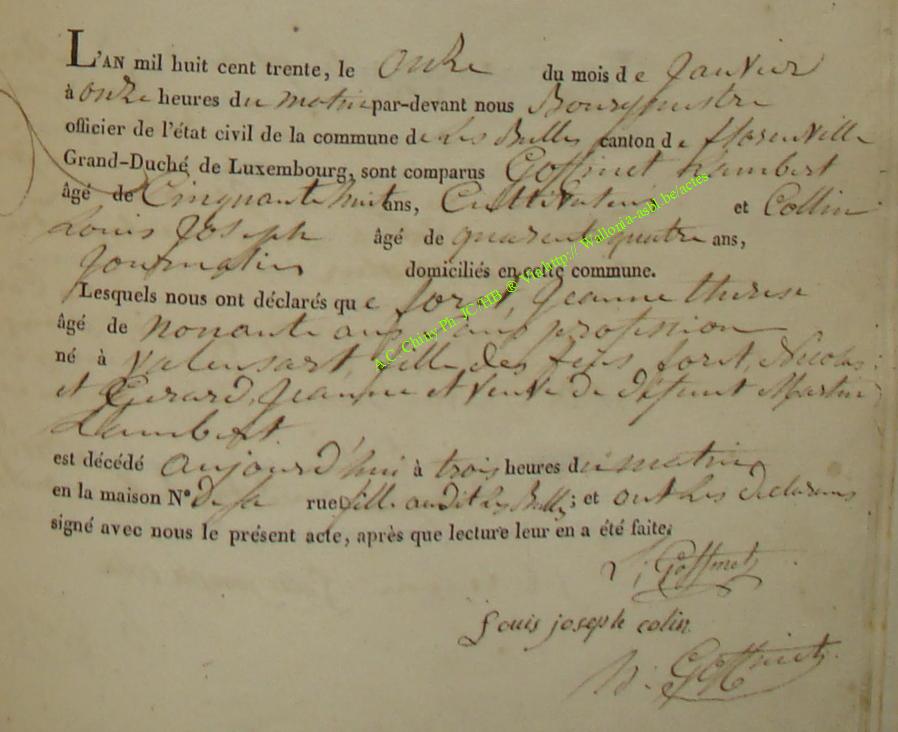 L'AN mil huit cent trente, le onze du mois de Janvier
à onze heures du matin par-devant nous Bourgmestre
officier de l'état civil de la commune de Les Bulles canton de florenville
Grand-Duché de Luxembourg, sont comparus Goffinet Lambert
âgé de Cinquante huit ans, Cultivateur et Collin
Louis Joseph âgé de quarent quatre ans,
Journalier domiciliés en cette commune.
Lesquels nous ont déclarés que foret, Jeanne therese
âgé de nonante ans, sans profession
né à Valensart, fille des feus foret, Nicolas
et Gerard, Jeanne et veuve de défunt Martin
Lambert
est décédé aujourd'hui à trois heures du matin
en la maison N° de sa rue fille au dit Les Bulles; et ont les declarans
signé avec nous le présent acte, après que lecture leur en a été faite.
L; Goffinet
Louis joseph colin
Goffinet
A.C. Chiny Ph JC/HB ® Via http://Wallonia-asbl.be/actes